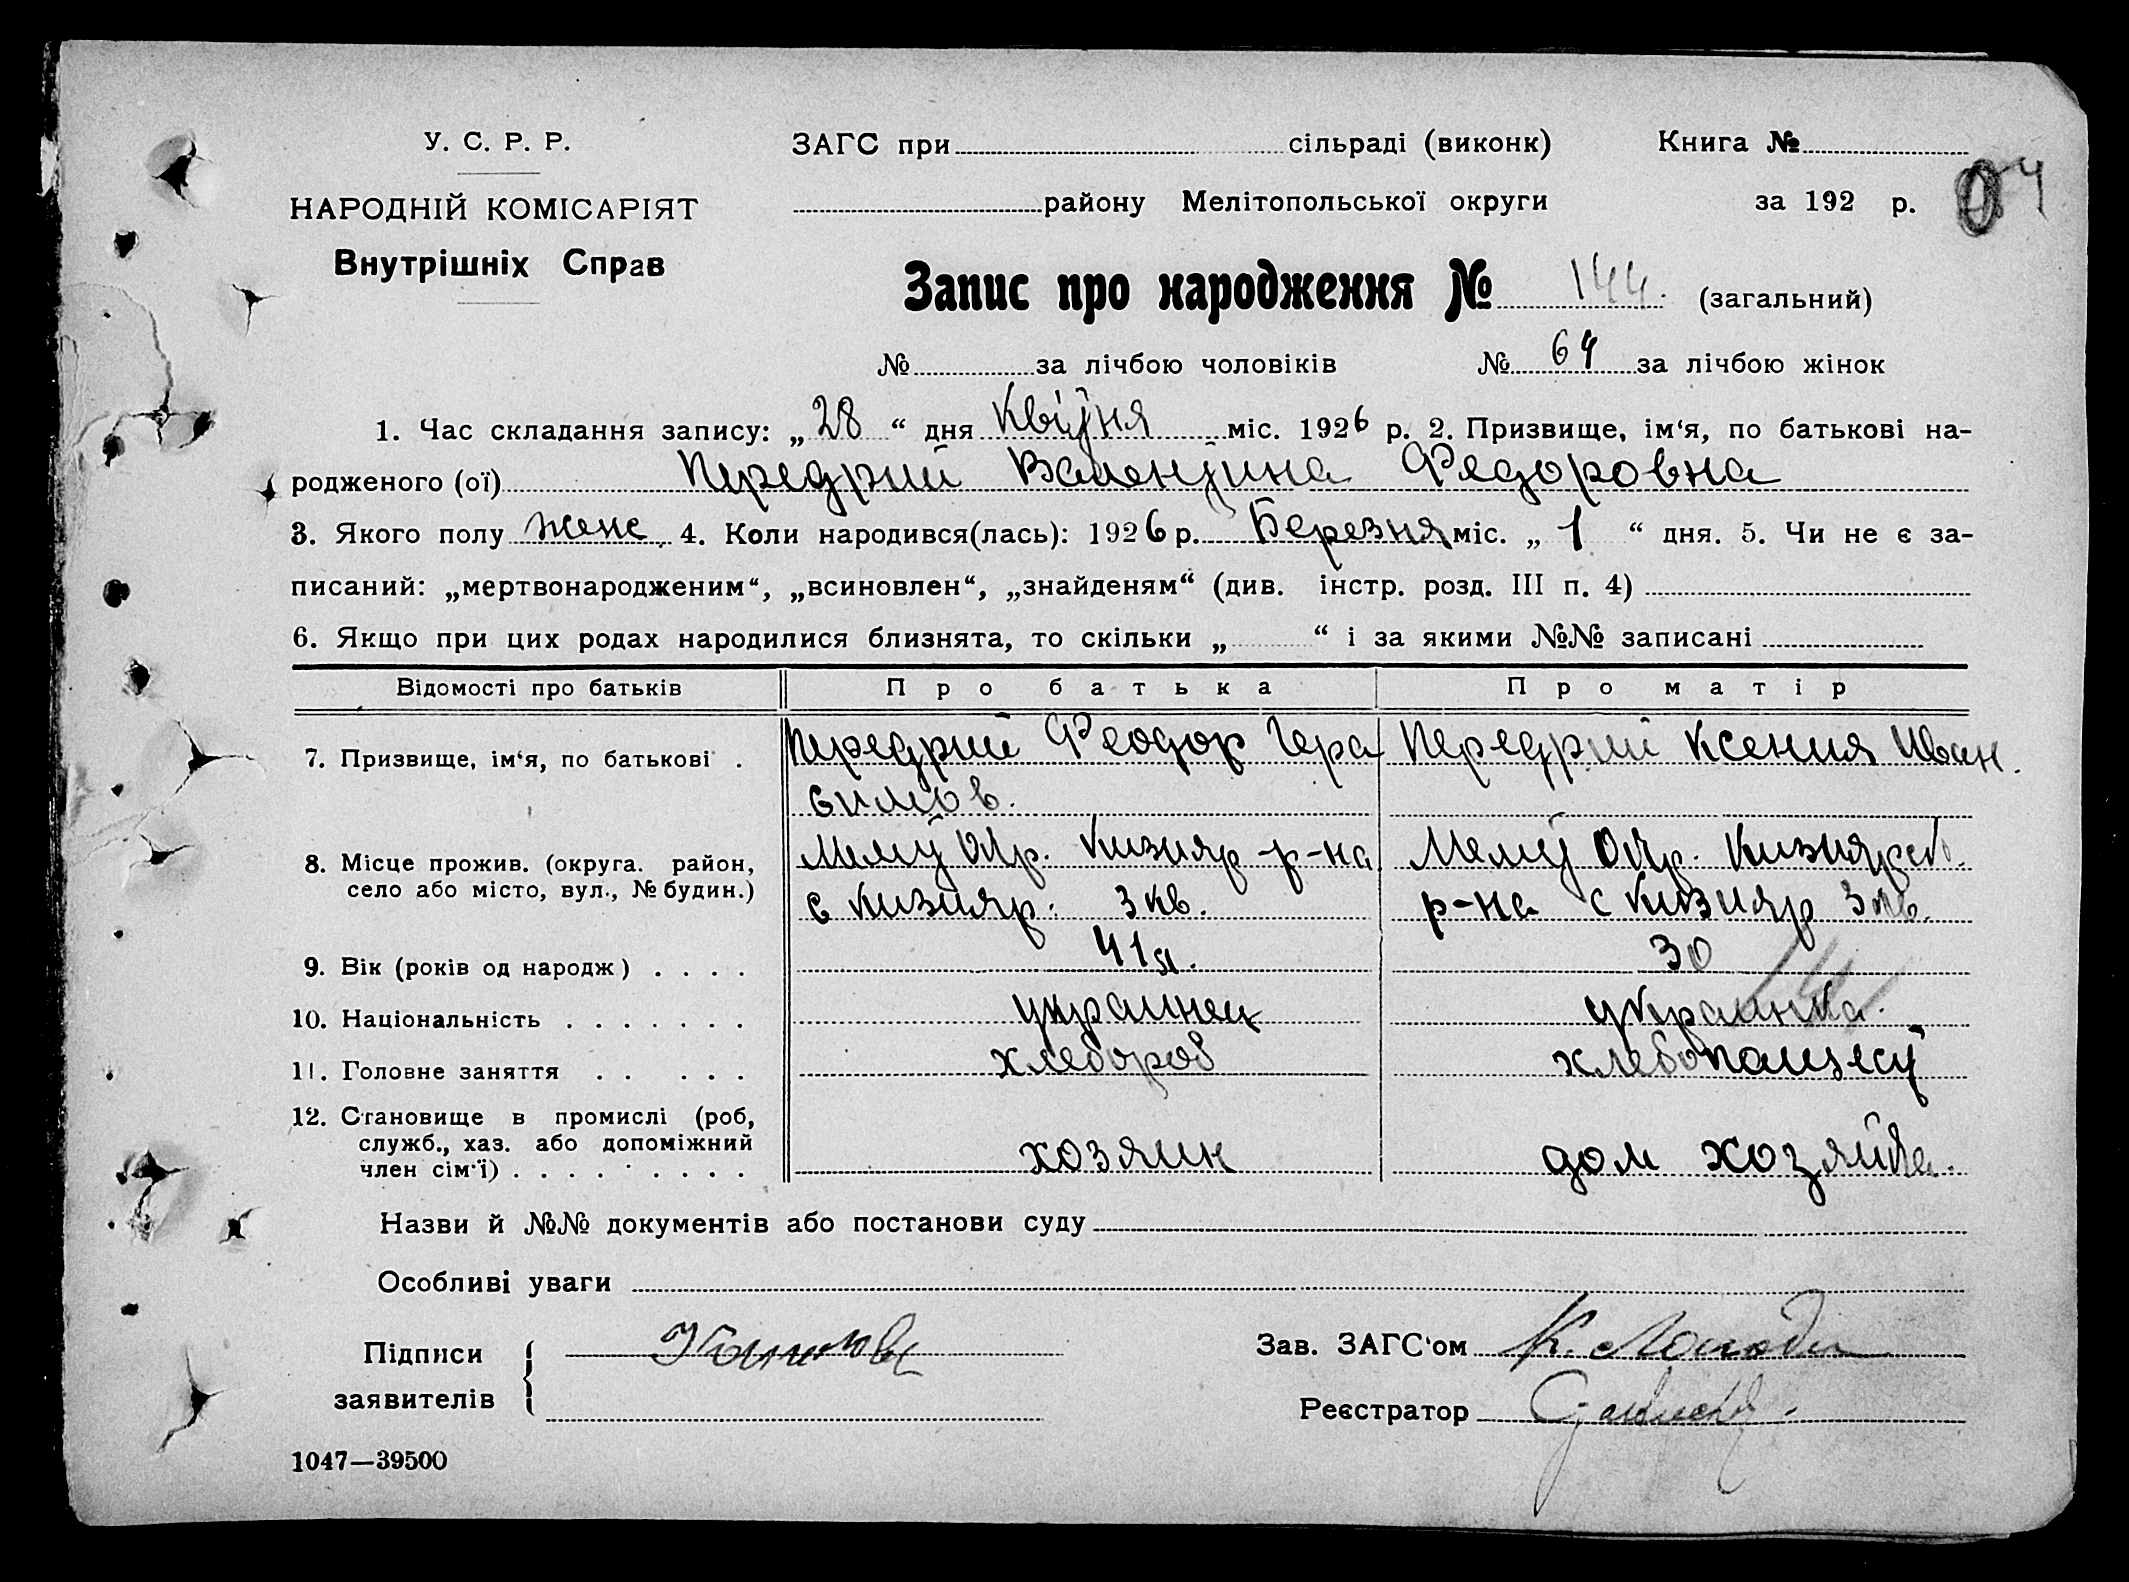 У. С. Р. Р.
НАРОДНІЙ КОМІСАРІЯТ
Внутрішніх Справ
ЗАГС при сільраді (виконк) Книга №
району Мелітопольської округи за 192 р.
Запис про народження № 144. (загальний)
№ за лічбою чоловіків № 64 за лічбою жінок
1. Час складання запису: „28“ дня Квітня міс. 1926 р. 2. Призвище, ім‘я, по батькові на-
родженого (ої) Передрий Валентина Федоровна
3. Якого полу женс. 4. Коли народився(лась): 1926 р. Березня міс. „1“ дня. 5. Чи не є за-
писаний: „мертвонародженим“, „всиновлен“, „знайденям“ (див. інстр. розд. III п. 4)
6. Якщо при цих родах народилися близнята, то скільки „ “ і за якими №№ записані
Відомості про батьків Про батька Про матір
7. Призвище, ім‘я, по батькові . Передрий Феодор Гера Передрий Ксения Иван.
симов.
8. Місце прожив. (округа. район, Мелит Окр. Кизияр р-на Мелит Окр. Кизиярск.
село або місто, вул., № будин.) с Кизияр. 3 кв. р-на с Кизияр 3 кв.
9. Вік (років од народж) . . . . 41 л. 30
10. Національність . . . . . . . украинец украинка.
11. Головне заняття . . . . . хлебороб хлебопашест
12. Становище в промислі (роб,
служб., хаз. або допоміжний
член сім‘ї) . . . . . . . . . хозяин дом хозяйка.
Назви й №№ документів або постанови суду
Особливі уваги
Підписи
заявителів
Зав. ЗАГС‘ом К.
Реєстратор
1047—39500